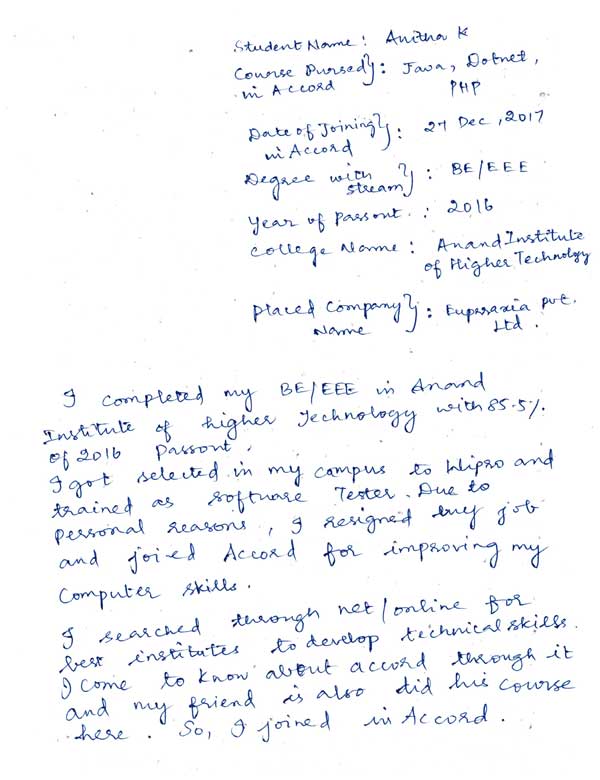 Student Name : Anitha K
Course Pursed } : Java, Dotnet,
in Accord PHP
Date of Joining } : 27 Dec, 2017
in Accord
Degree with } : BE/EEE
stream
Year of Passout : 2016
College Name : Anand Institute
of Higher Technology
Placed Company } : Eupraxia pvt.
Name Ltd.
I completed my BE/EEE in Anand
Institute of higher Technology with 85.5%.
of 2016 Passout.
I got selected in my campus to Wipro and
trained as software Tester. Due to
Personal reasons, I resigned my job
and joined Accord for improving my
Computer skills.
I searched through net/online for
best institutes to develop technical skills.
I come to know about accord through it
and my friend is also did his course
here. So, I joined in Accord.